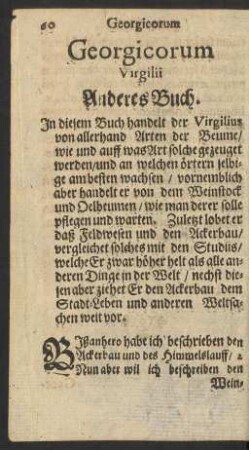 60 Georgicorum
Georgicorum
Virgilii
Anderes Buch.
In diesem Buch handelt der Virgilius
von allerhand Arten der Beume/
wie und auff was Art solche gezeuget
werden/und an welchen örtern selbi-
ge am besten wachsen / vornemblich
aber handelt er von dem Weinstock
und Oelbeumen / wie man derer solle
pflegen und warten. Zuletzt lobet er
daß Feldwesen und den Ackerbau/
vergleichet solches mit den Studiis/
welche Er zwar höher helt als alle an-
deren Dinge in der Welt / nechst die-
sen aber ziehet Er den Ackerbau dem
Stadt-Leben und anderen Weltsa-
chen weit vor.
BIßanhero habe ich beschrieben den
Ackerbau und des Himmelslauff/
Nun aber wil ich beschreiben den
Wein-